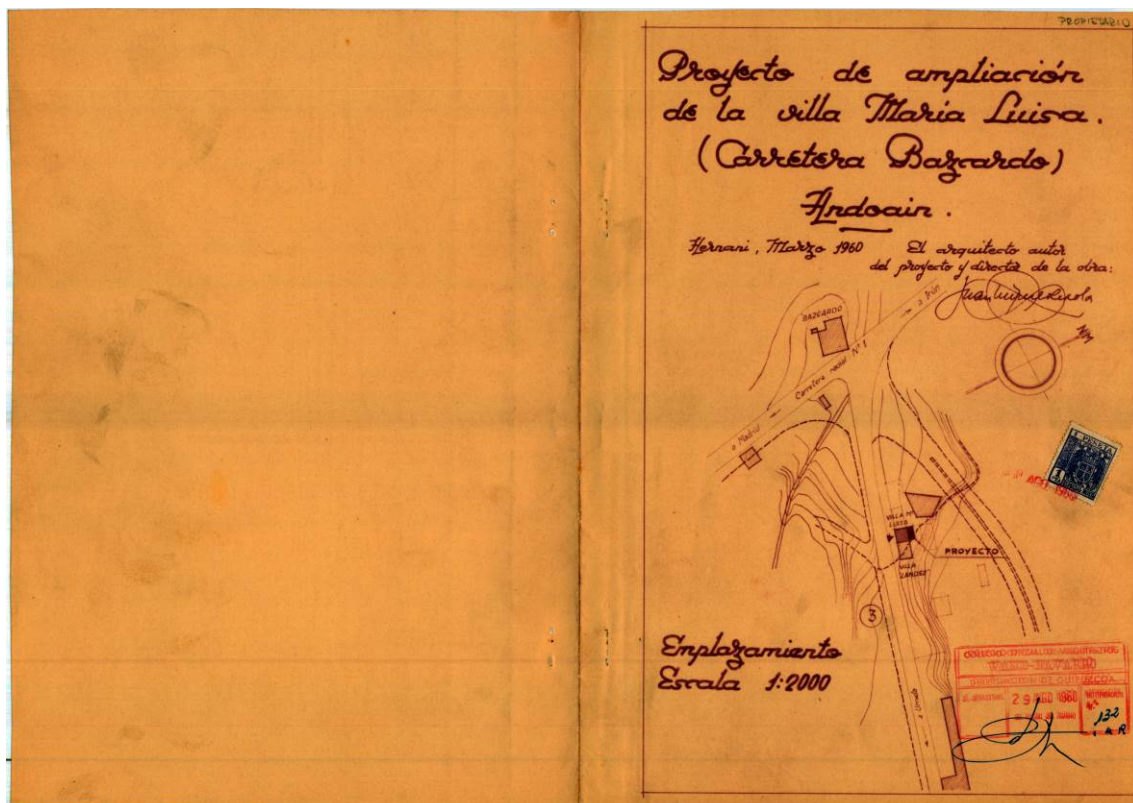 PROPIETARIO
Proyecto de ampliación
de la villa María Luisa.
(Carretera Bazcardo)
Andoain.
Hernani, Marzo 1960
El arquitecto autor
del proyecto y director de la obra:
a Irún
BAZCARDO
Carretera radial Nº 1
a Madrid
1 PESETA
1
VILLA Mª
LUISA
PROYECTO
VILLA
3
Enplazamiento
Escala 1:2000
COLEGIO OFICIAL DE ARQUITECTOS
VASCO-NAVARRO
DELEGACION DE GUIPUZCOA
29 1960
Nº
132